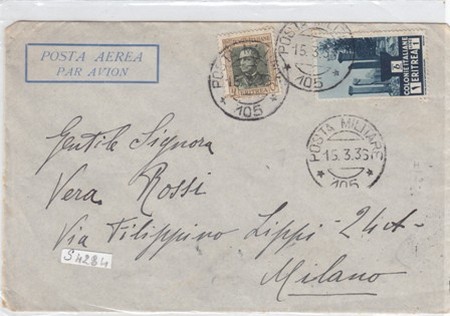 POSTA AEREA
PAR AVION
POSTA MILITARE
15.3.36
105
COLONIE ITALIANE
ERITREA
POSTA MILITARE
15.3.36
105
Gentile Signora
Vera Rossi
Via Filippino Lippi
S4284
Milano